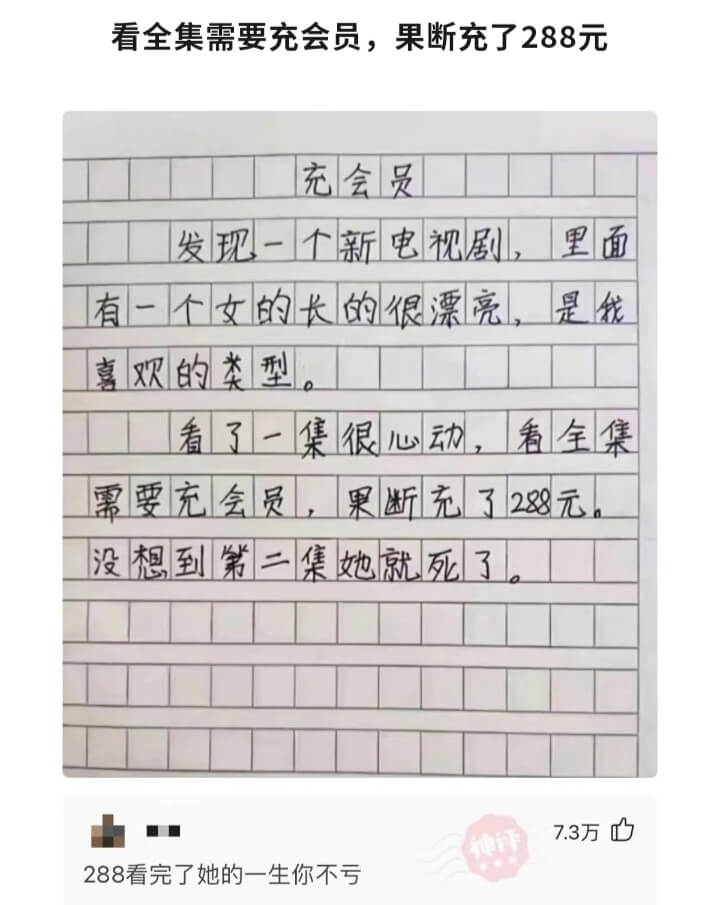 看全集需要充会员，果断充了288元
充会员
发现一个新电视剧，里面
有一个女的长的很漂亮，是我
喜欢的类型。
看了一集很心动，看全集
需要充会员，果断充了288元。
没想到第二集她就死了。
神评
7.3万
288看完了她的一生你不亏